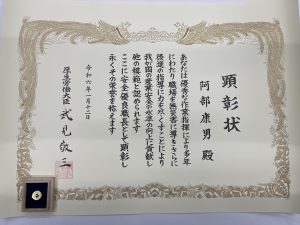 顕彰状
阿部康男 殿
あなたは優秀な作業指揮により多年
にわたり職場を無災害に導きさらに
後進の指導に力を尽くすことにより
我が国の産業安全の水準の向上に貢献し
他の模範と認められます
ここに安全優良職長として顕彰し
永くその栄誉を称えます
令和六年一月十二日
厚生労働大臣 武見敬三